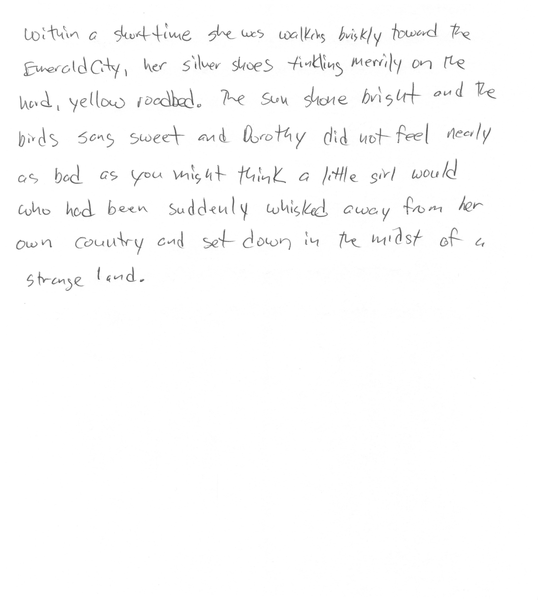 Within a short time she was walking briskly toward the
Emerald City, her silver shoes tinkling merrily on the
hard, yellow roadbed. The sun shone bright and the
birds sang sweet and Dorothy did not feel nearly
as bad as you might think a little girl would
who had been suddenly whisked away from her
own country and set down in the midst of a
strange land.